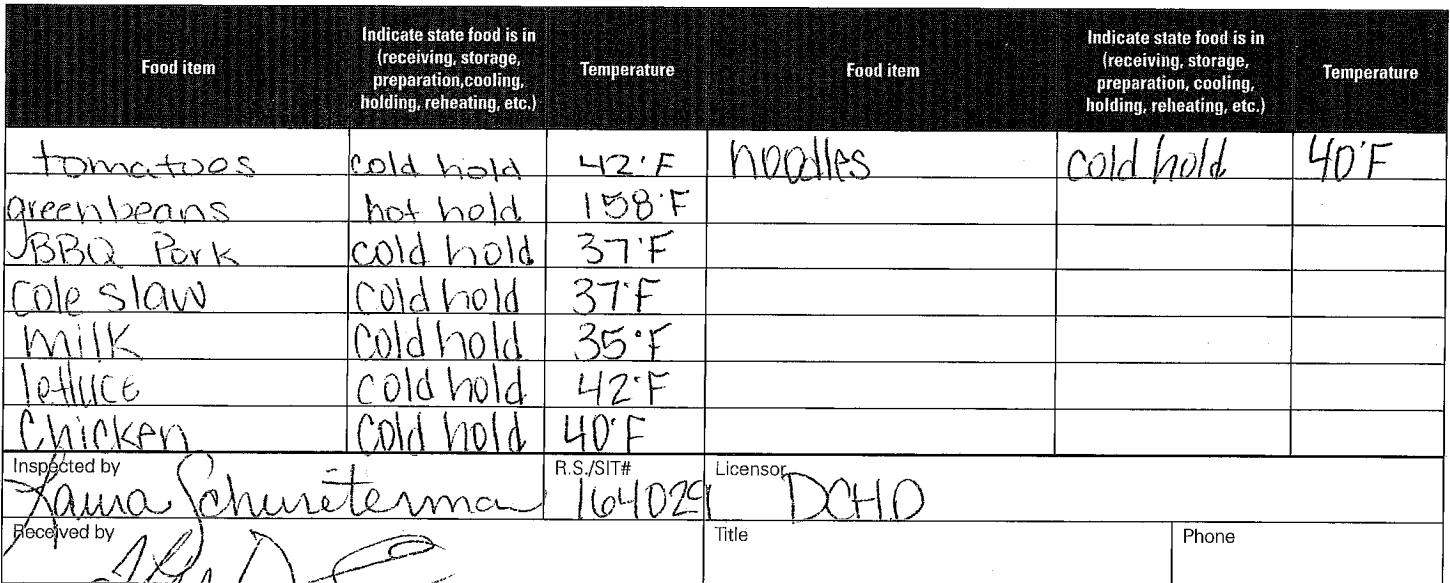 Food item Indicate state food is in (receiving, storage, preparation,cooling, holding, reheating, etc.) Temperature Food item Indicate state food is in (receiving, storage, preparation, cooling, holding, reheating, etc.) Temperature
tomatoes cold hold 42°F noodles cold hold 40°F
greenbeans hot hold 158°F
BBQ Pork cold hold 37°F
cole slaw cold hold 37°F
milk cold hold 35°F
lettuce cold hold 42°F
Chicken cold hold 40°F
Inspected by R.S./SIT# Licensor
Laura 164029 DCHD
Received by Title Phone